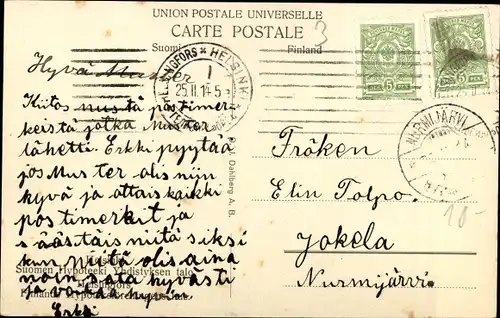 UNION POSTALE UNIVERSELLE
CARTE POSTALE
Suomi Finland
3
HELSINGFORS × HELSINKI
I
25.II.14.5
5 5
NURMIJÄRVI
Hyvä Muster
Kiitos niistä postimer
keistä jotka Muster
lähetti. Erkki pyytää
jos Muster olis niin
hyvä ja ottais kaikki
postimerkit ja
säästäis niitä siksi
kun niitä olis aina
noin sata hyvästi
ja voikaa hyvin.
Erkki
Suomen Hypoteeki Yhdistyksen talo
Helsingfors
Dahlberg A. B.
Fröken
Elin Tolpo.
Jokela
Nurmijärvi
10-